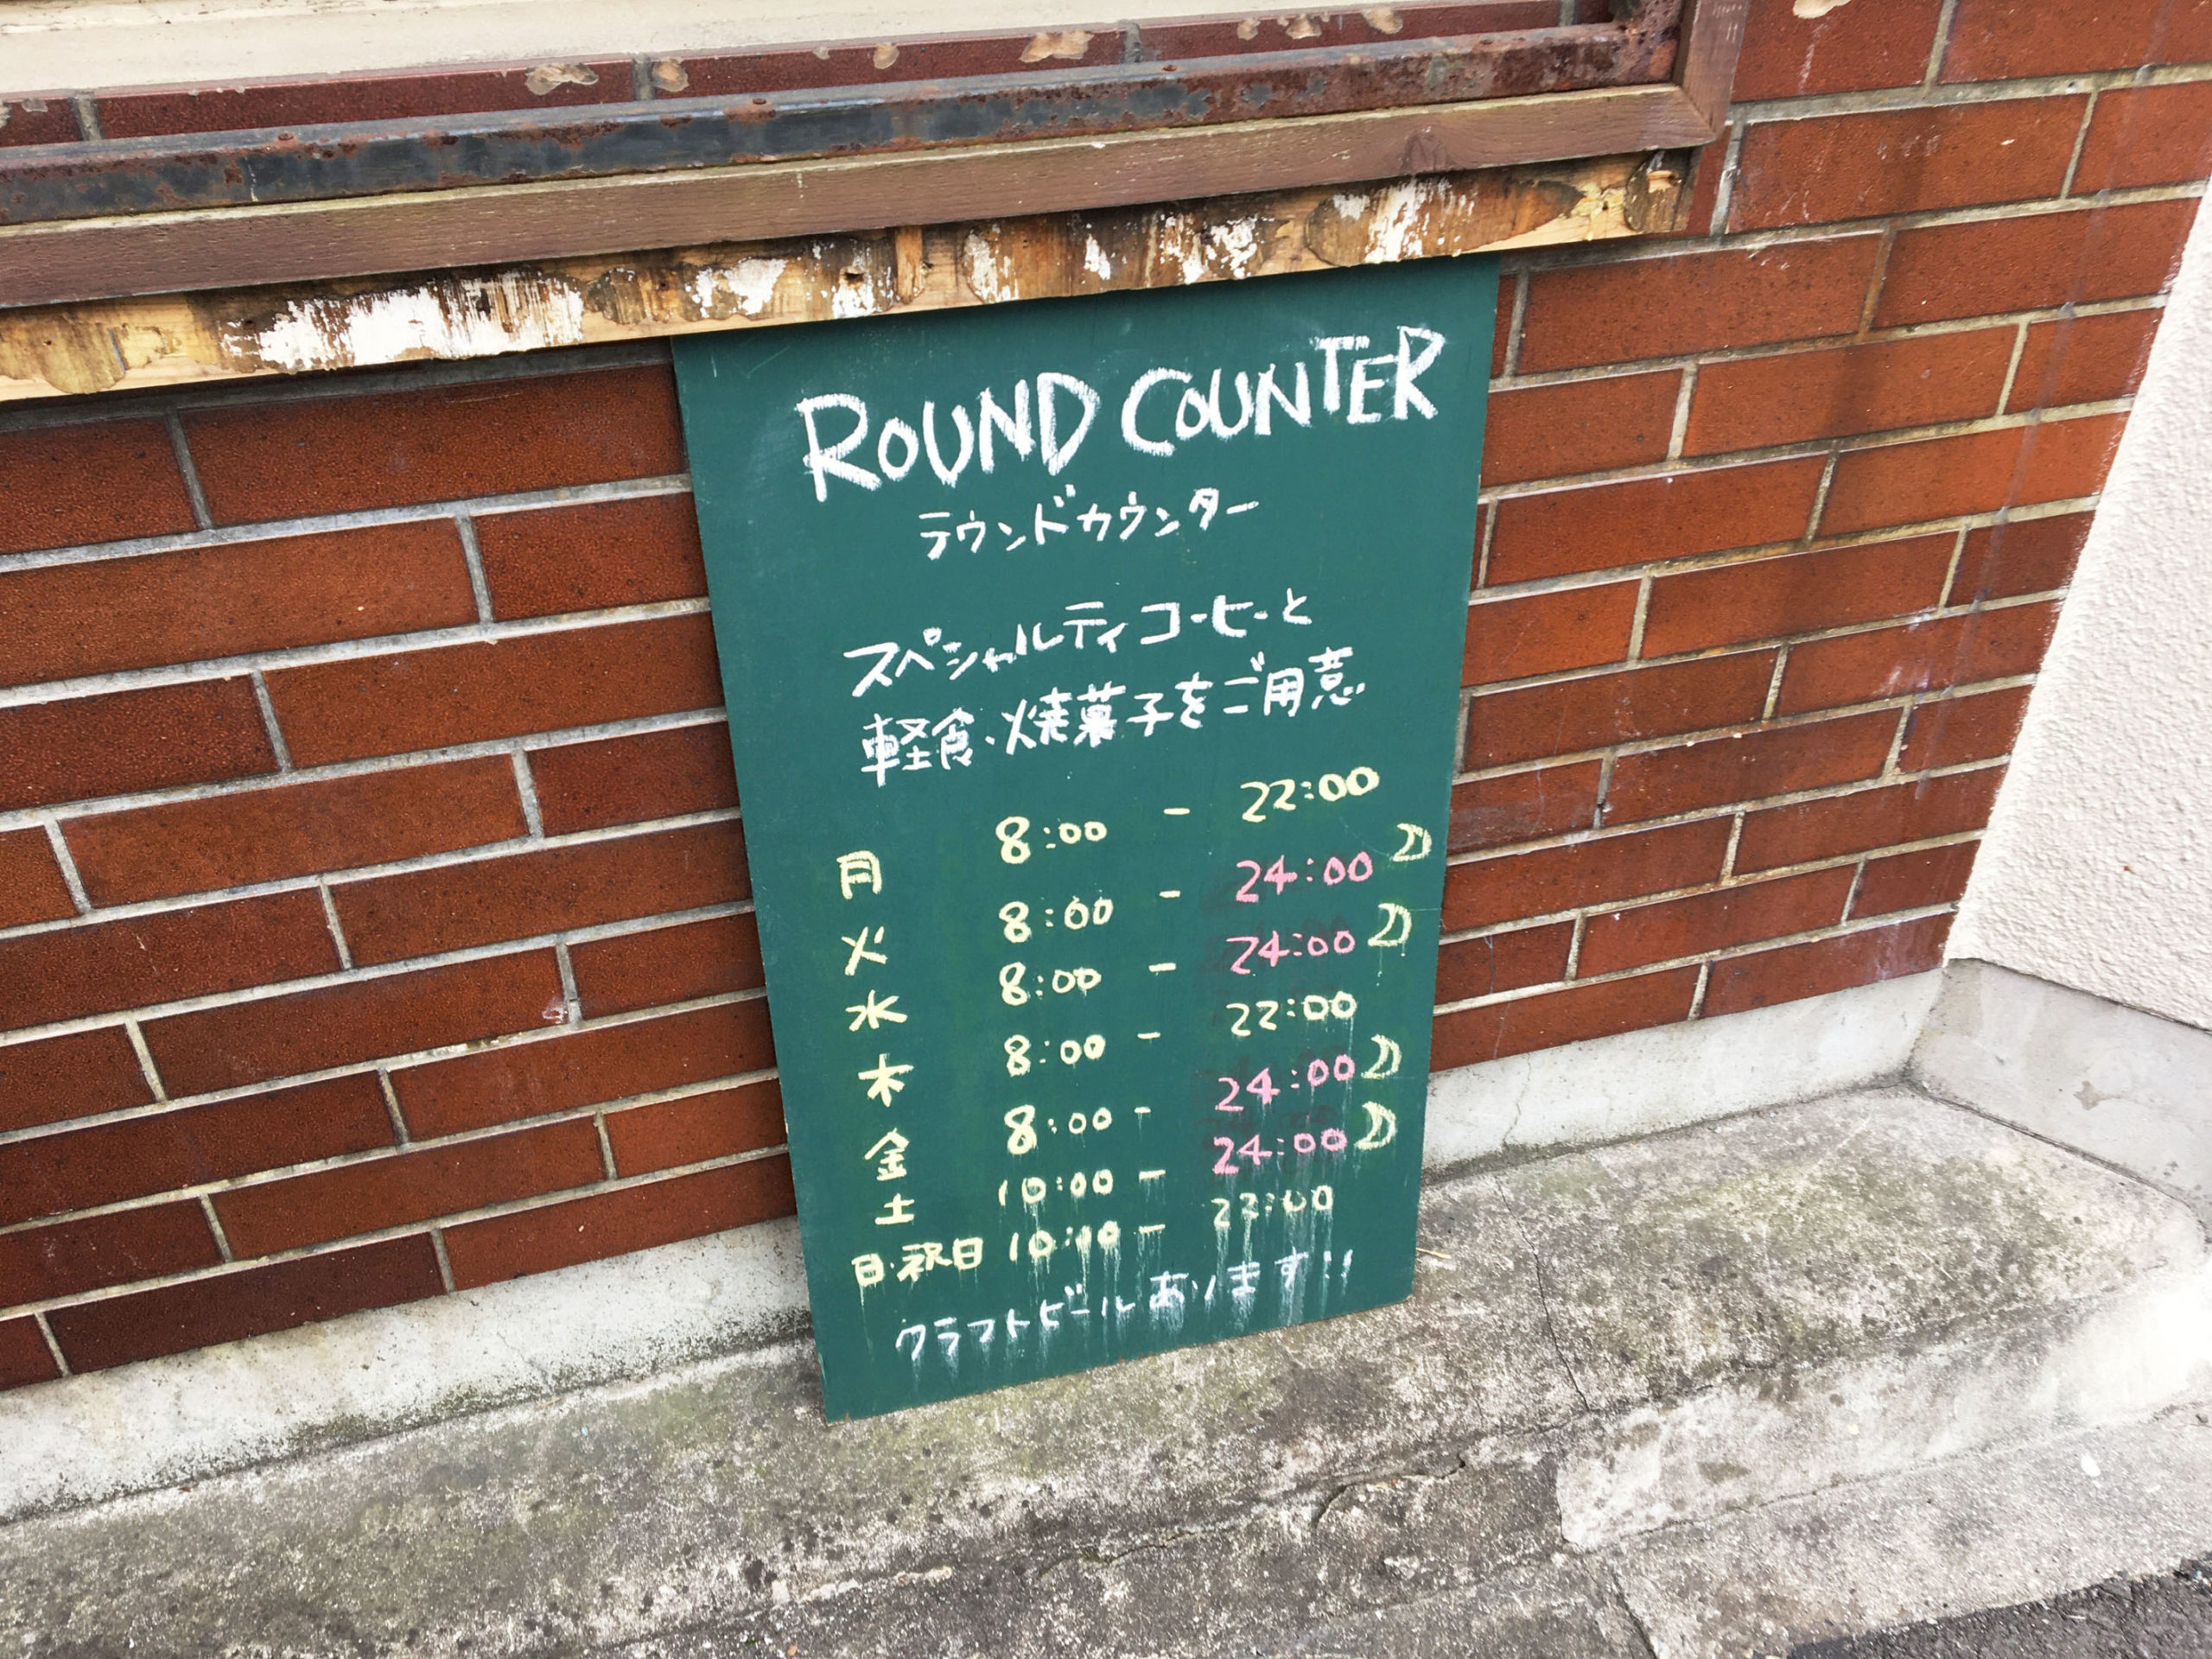 ROUND COUNTER
ラウンドカウンター
スペシャルティコーヒーと
軽食・焼菓子をご用意
月 8:00 - 22:00
火 8:00 - 24:00
水 8:00 - 24:00
木 8:00 - 22:00
金 8:00 - 24:00
土 10:00 - 24:00
日・祝日 10:00 - 22:00
クラフトビールあります!!